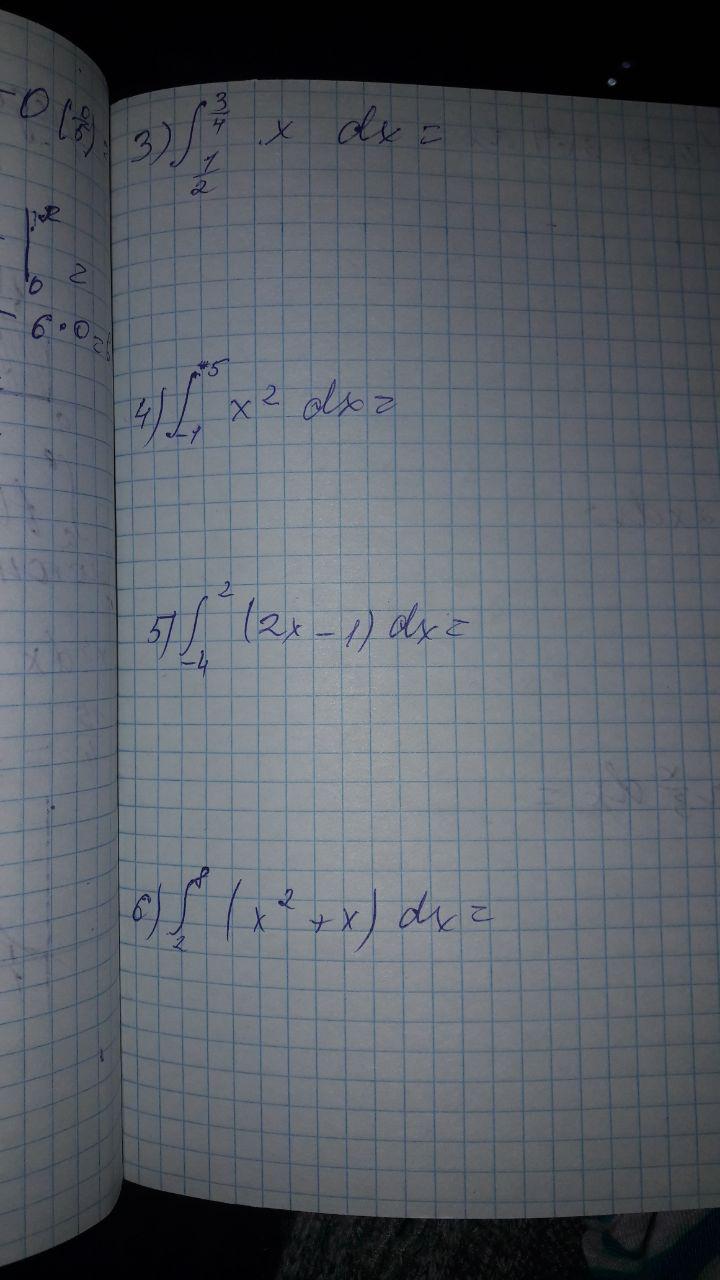 0 (0/5) =
3) ∫_{1/2}^{3/4} x dx =
6 · 0 =
4) ∫_{-1}^{5} x² dx =
5) ∫_{-4}^{2} (2x - 1) dx =
6) ∫_{2}^{8} (x² + x) dx =